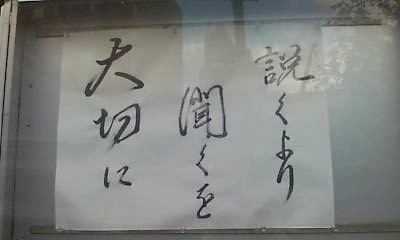 説くより
聞くを
大切に